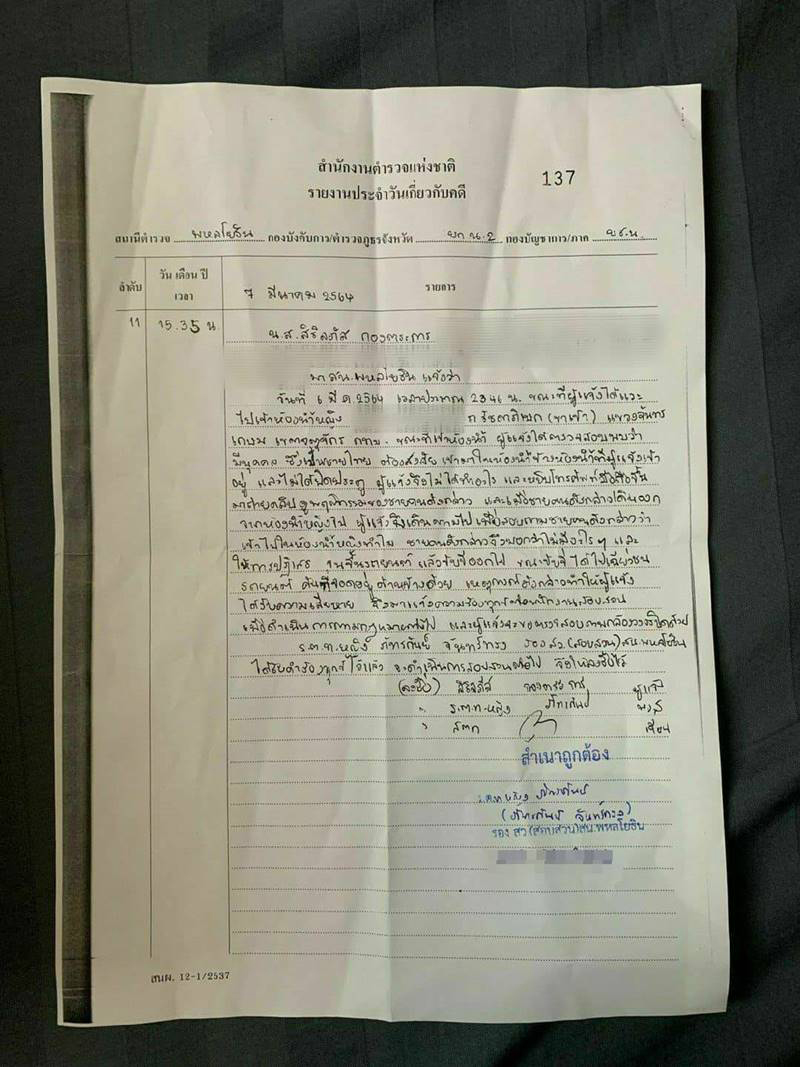 สำนักงานตำรวจแห่งชาติ
137
รายงานประจำวันเกี่ยวกับคดี
สถานีตำรวจ พหลโยธิน กองบังคับการ/ตำรวจภูธรจังหวัด บก น.2 กองบัญชาการ/ภาค บช.น.
ลำดับ
วัน เดือน ปี
เวลา
7 มีนาคม 2564
รายการ
11
15.35 น
น.ส.สิริลภัส กองตระการ
มา สน.พหลโยธิน แจ้งว่า
วันที่ 6 มี.ค.2564 เวลาประมาณ 23.41 น. ขณะที่ผู้แจ้งได้แวะ
ไปเข้าห้องน้ำหญิง ถ.รัชดาภิเษก (ขาเข้า) แขวงจันทร
เกษม เขตจตุจักร กทม. ขณะเข้าห้องน้ำ ผู้แจ้งได้ตรวจสอบพบว่า
มีบุคคล ซึ่งเป็นชายไทย ต้องสงสัย เข้ามาในห้องน้ำข้างห้องน้ำที่ผู้แจ้งเข้า
อยู่ และไม่ได้ปิดประตู ผู้แจ้งจึงไม่ได้ทำอะไร และหยิบโทรศัพท์มือถือขึ้น
มาถ่ายคลิปดูพฤติกรรมของชายคนดังกล่าว และเมื่อชายคนดังกล่าวเดินออก
จากห้องน้ำหญิงไป ผู้แจ้งจึงเดินตามไป เพื่อสอบถามชายคนดังกล่าวว่า
เข้าไปในห้องน้ำหญิงทำไม ชายคนดังกล่าวจึงบอกว่าไม่มีอะไรๆ และ
ให้การปฏิเสธ จนขึ้นรถยนต์ แล้วขับขี่ออกไป ขณะขับขี่ ได้ไปเฉี่ยวชน
รถยนต์ คันที่จอดอยู่ด้านข้างด้วย เหตุการณ์ดังกล่าวทำให้ผู้แจ้ง
ได้รับความเสียหาย จึงมาแจ้งความร้องทุกข์ต่อพนักงานสอบสวน
เพื่อดำเนินการตามกฎหมายต่อไป และผู้แจ้งจะขอตรวจสอบตามกล้องวงจรปิดด้วย
ร.ต.ท.หญิง ภัทรกันย์ จันทร์ทรง รอง สว.(สอบสวน) สน.พหลโยธิน
ได้รับคำร้องทุกข์ไว้แล้ว จะดำเนินการสอบสวนต่อไป จึงให้ลงชื่อไว้
(ลงชื่อ) สิริลภัส กองตระการ ผู้แจ้ง
" ร.ต.ท.หญิง ภัทรกันย์ พงส
" ส.ต.ต เขียน
สำเนาถูกต้อง
ร.ต.ท.หญิง ภัทรกันย์
(ภัทรกันย์ จันทร์ทรง)
รอง สว.(สอบสวน)สน.พหลโยธิน
สนผ. 12-1/2537